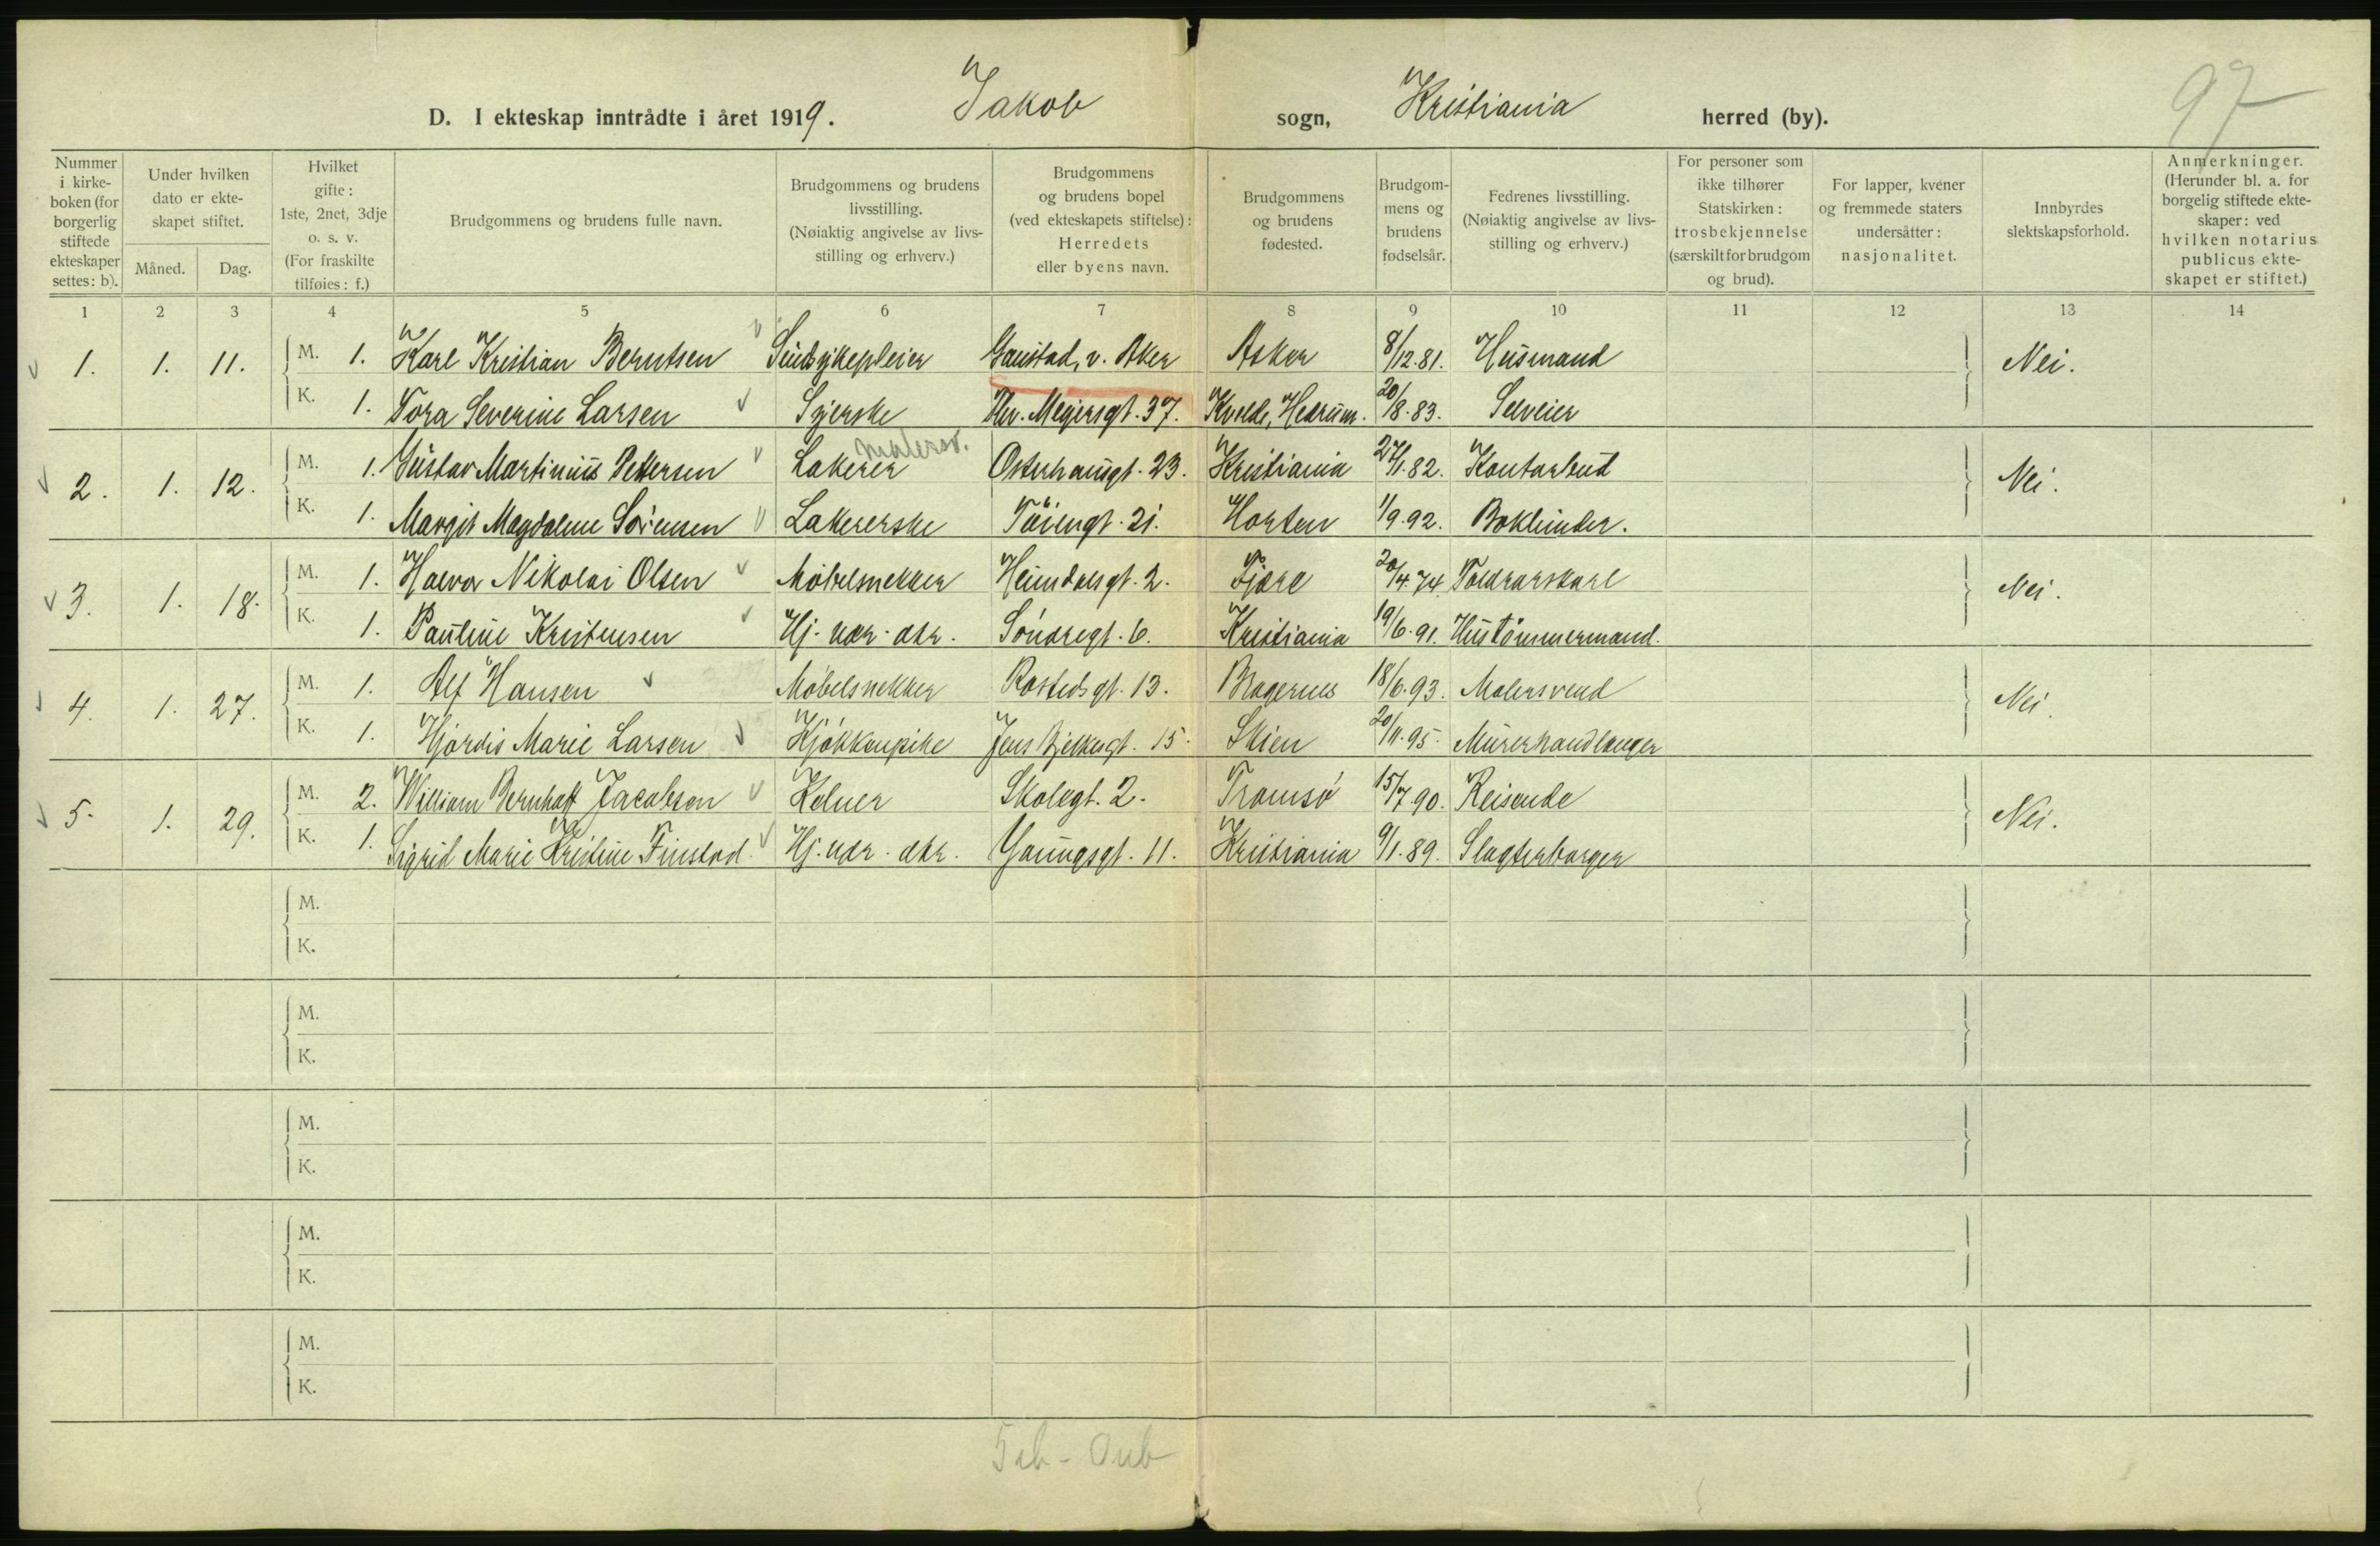 97
D. I ekteskap inntrådte i året 1919. Jakob sogn, Kristiania herred (by).
Nummer i kirkeboken (for borgerlig stiftede ekteskaper settes: b).
Under hvilken dato er ekteskapet stiftet.
Måned.
Dag.
Hvilket gifte: 1ste, 2net, 3dje o. s. v. (For fraskilte tilføies: f.)
Brudgommens og brudens fulle navn.
Brudgommens og brudens livsstilling. (Nøiaktig angivelse av livsstilling og erhverv.)
Brudgommens og brudens bopel (ved ekteskapets stiftelse): Herredets eller byens navn.
Brudgommens og brudens fødested.
Brudgommens og brudens fødselsår.
Fedrenes livsstilling. (Nøiaktig angivelse av livsstilling og erhverv.)
For personer som ikke tilhører Statskirken: trosbekjennelse (særskilt for brudgom og brud).
For lapper, kvener og fremmede staters undersåtter: nasjonalitet.
Innbyrdes slektskapsforhold.
Anmerkninger. (Herunder bl. a. for borgelig stiftede ekteskaper: ved hvilken notarius publicus ekteskapet er stiftet.)
1 2 3 4 5 6 7 8 9 10 11 12 13 14
1. 1. 11. M. 1. Karl Kristian Berntsen Sindsykepleier Gaustad, v. Aker Asker 8/12.81. Husmand Nei.
K. 1. Tora Severine Larsen Syerske Thv. Meyersgt. 37. Kvelde, Hedrum. 20/8.83. Selveier
malersv.
2. 1. 12. M. 1. Gustav Martinius Pettersen Lakerer Osterhausgt. 23. Kristiania 27/1.82. Kontorbud Nei.
K. 1. Margit Magdalene Sørensen Lakererske Tøiengt. 21. Horten 1/9.92. Bokbinder.
3. 1. 18. M. 1. Halvor Nikolai Olsen Møbelsnekker Heimdalsgt. 2. Fjære 20/4.74. Nei.
K. 1. Pauline Kristensen Hj. vær. dtr. Søndregt. 6. Kristiania 19/6.91. Hustømmermand.
4. 1. 27. M. 1. Alf Hansen Møbelsnekker Rostedsgt. 13. Bragernes 18/6.93. Malersvend Nei.
K. 1. Hjørdis Marie Larsen Kjøkkenpike Jens Bjelkesgt. 15. Skien 20/11.95. Murerhandlanger
5. 1. 29. M. 2. William Bernhoft Jacobsen Kelner Skolegt. 2. Tromsø 15/7.90. Reisende Nei.
K. 1. Sigrid Marie Kristine Finstad. Hj. vær. dtr. Youngsgt. 11. Kristiania 9/1.89. Slagterborger
M.
K.
M.
K.
M.
K.
M.
K.
M.
K.